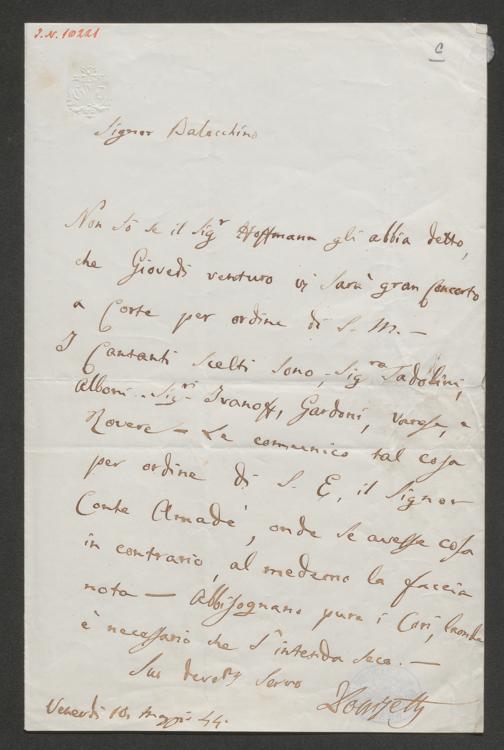 I. N. 10221
C
Signor Balocchino
Non sò se il Sigr Hoffmann gli abbia detto,
che Giovedì venturo vi sarà gran Concerto
a Corte per ordine di S. M. —
I Cantanti scelti sono, Sigra Tadolini,
Alboni. Sigri Ivanoff, Gardoni, Varese, e
Rovere — Le comunico tal cosa
per ordine di S. E, il Signor
Conte Amadè, onde se avesse cosa
in contrario, al medemo la faccia
nota — Abbisognano pure i Cori,
è necessario che s'intenda seco. —
Suo Servo
Donizetti
Venerdì 10 Maggio 44.